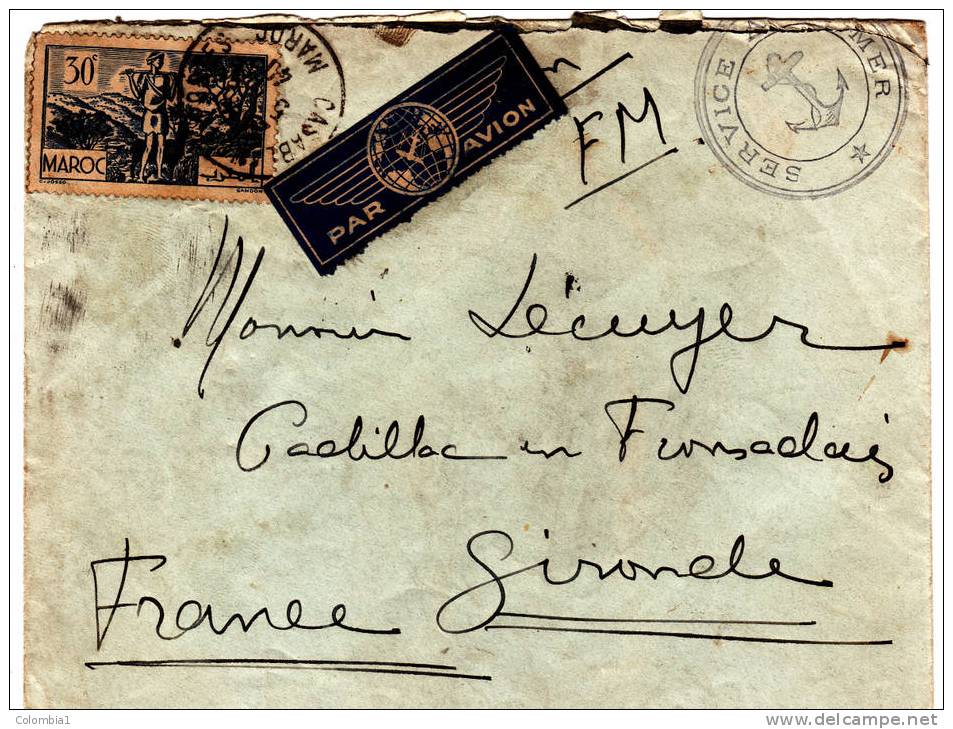 30c
MAROC
MAROC
CASAB
PAR AVION
FM
SERVICE A MER
Monsieur Lécuyer
Cadillac en Fronsadais
Gironde
France
Colombia1
delcampe.net